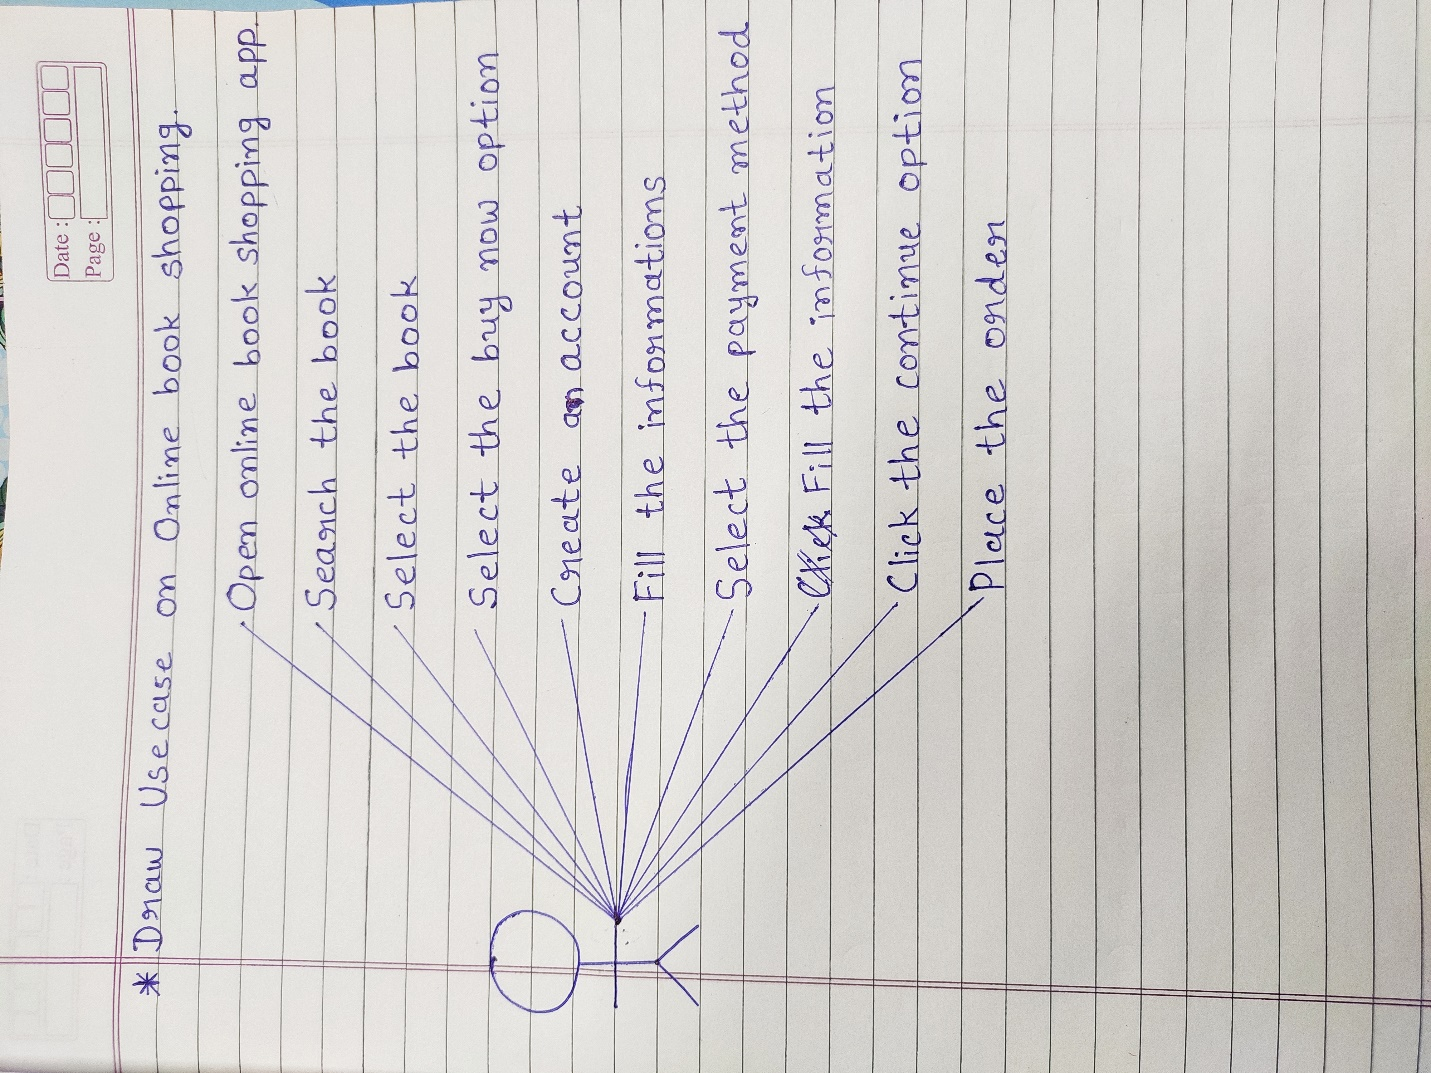 Date :
Page :
* Draw Usecase on Online book shopping.
Open online book shopping app.
Search the book
Select the book
Select the buy now option
Create an account
Fill the informations
Select the payment method
Click Fill the information
Click the continue option
Place the order